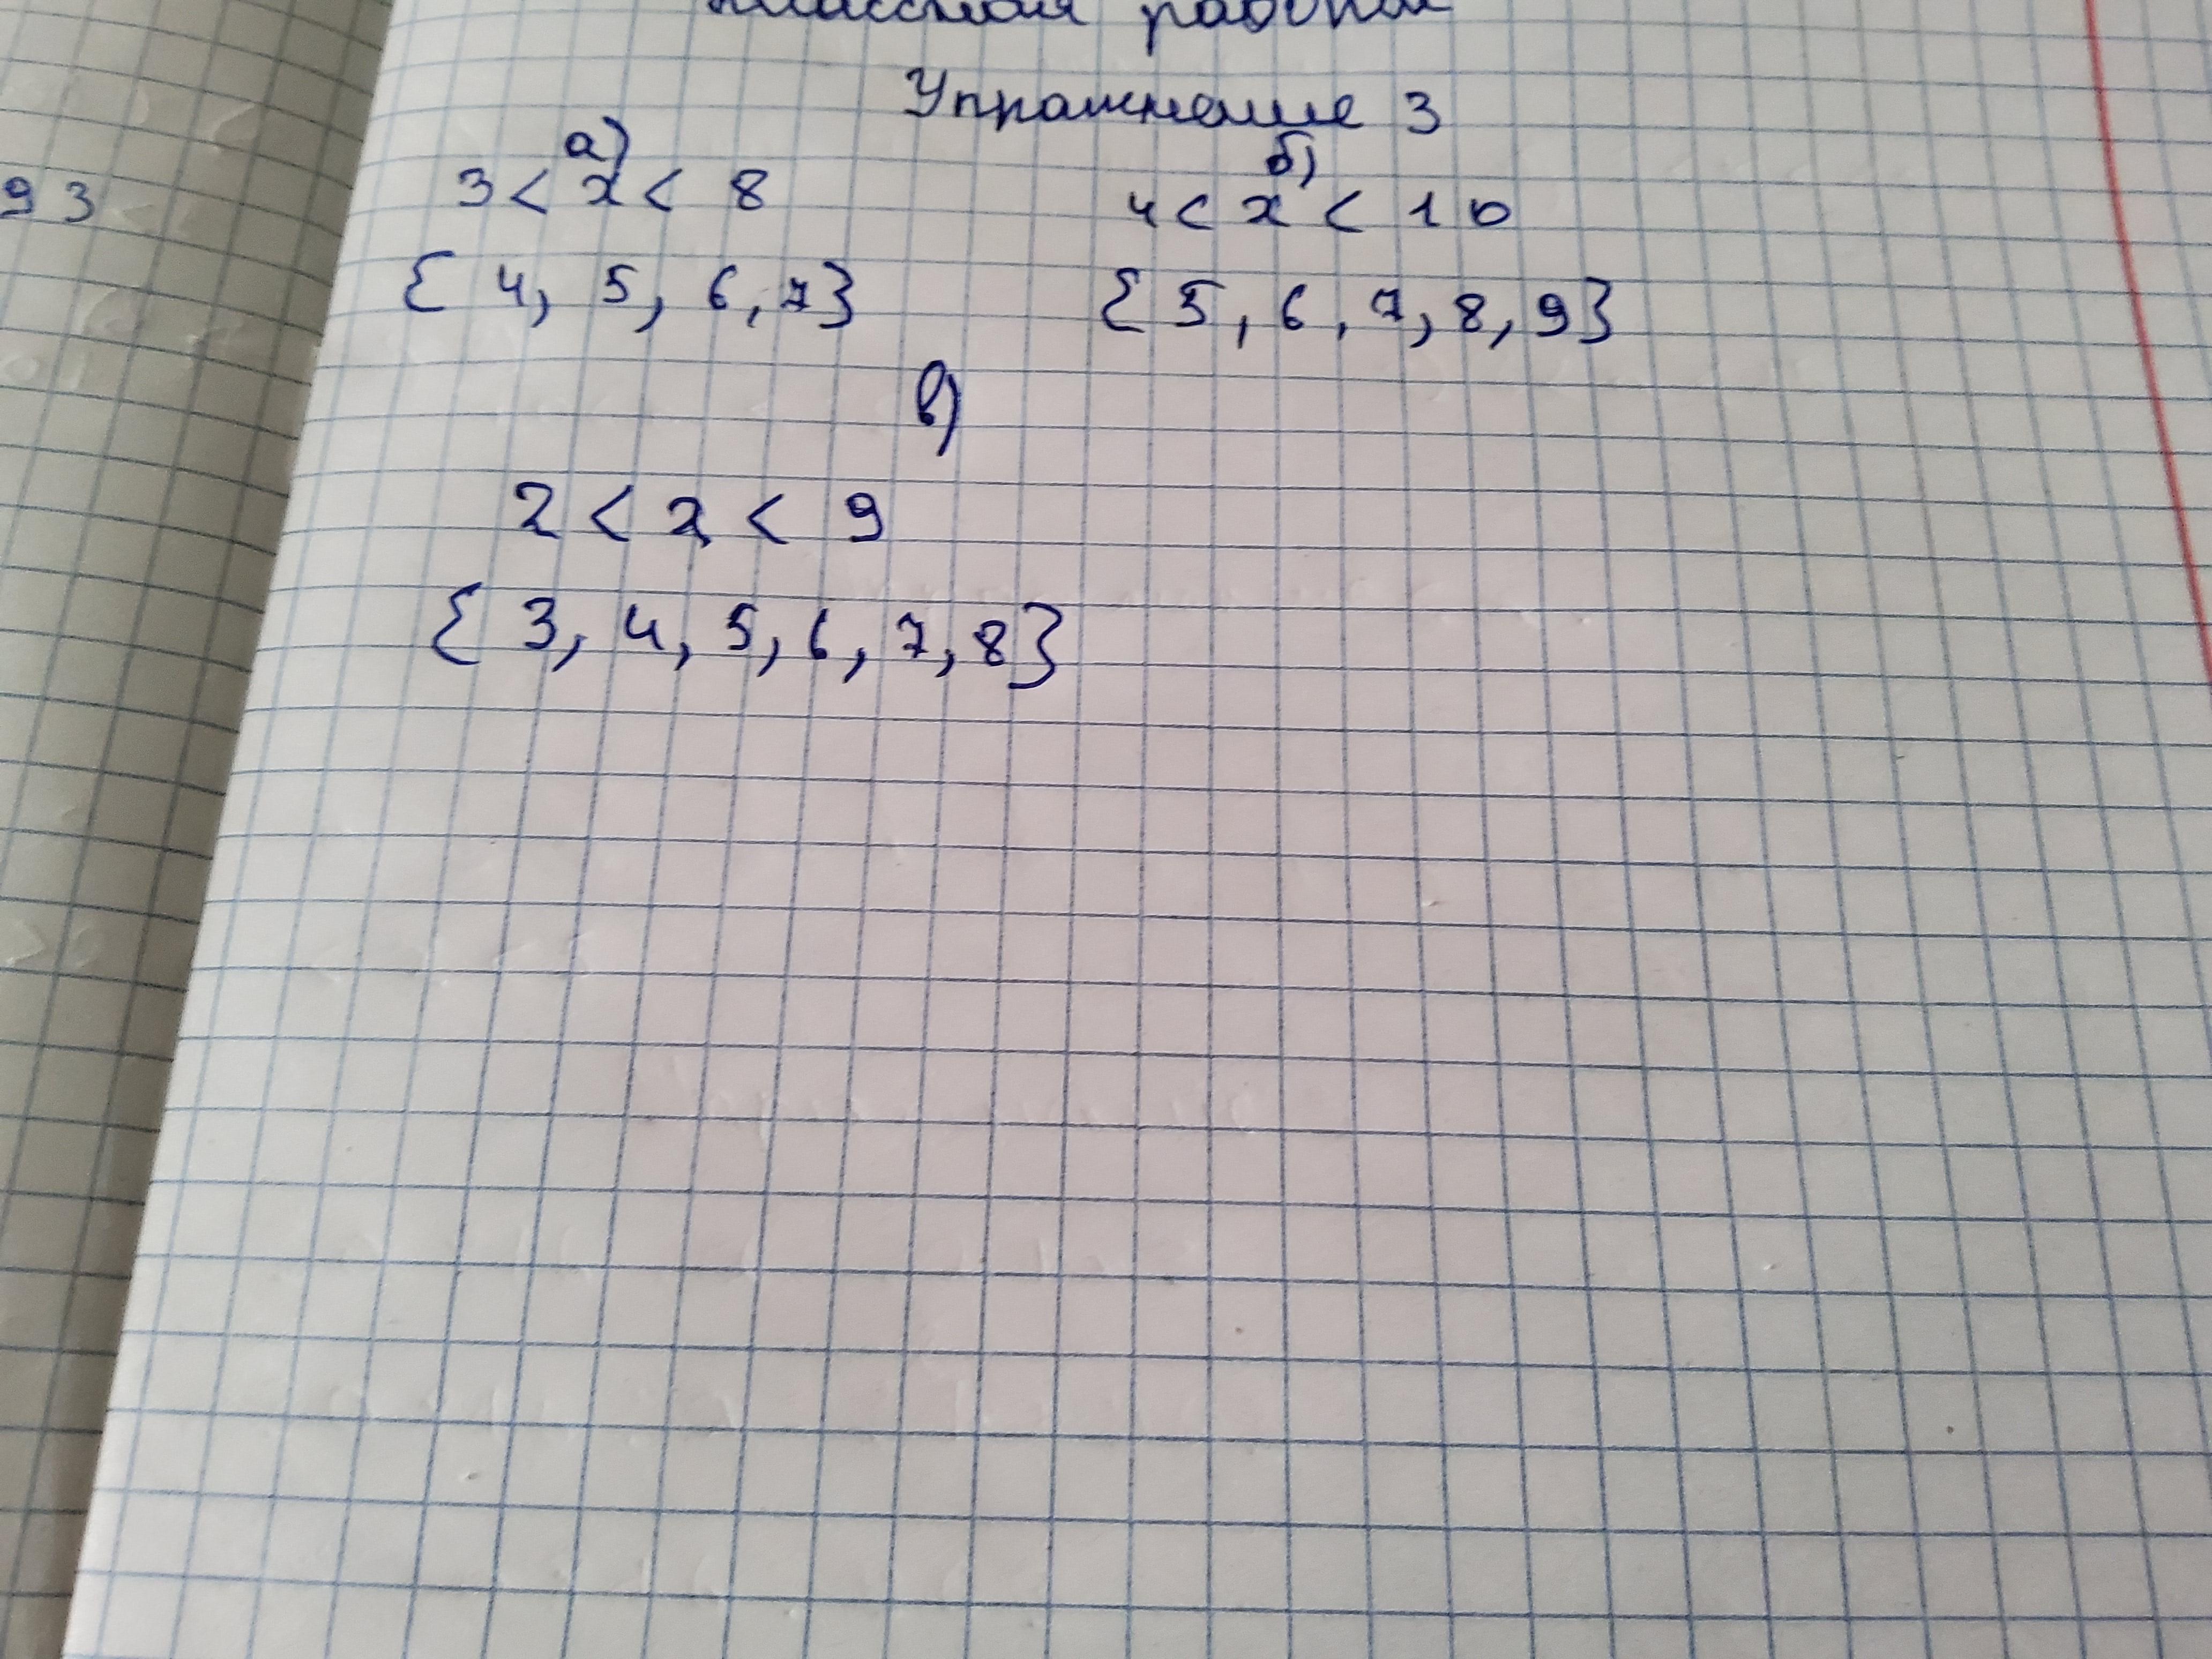 классная работа
Упражнение 3
93
а)
3 < x < 8
{ 4, 5, 6, 7}
б)
4 < x < 10
{ 5, 6, 7, 8, 9}
в)
2 < x < 9
{ 3, 4, 5, 6, 7, 8}